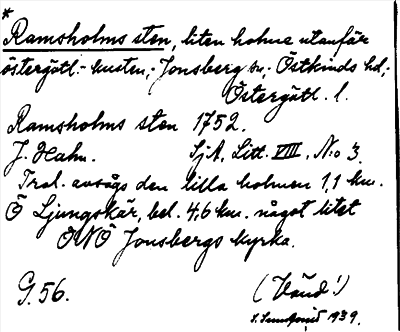 *
Ramsholms sten, liten holme utanför
östergötl.-kusten,- Jonsberg sn,- Östkinds hd,-
Östergötl. l.
Ramsholms sten 1752.
J. Hahn. SjA, Litt. VIII, N:o 3.
Trol. avsågs den lilla holmen 1,1 km.
Ö Ljungskär, bel. 4,6 km. något litet
ONÖ Jonsbergs kyrka.
G. 56. (Vänd!)
1939.